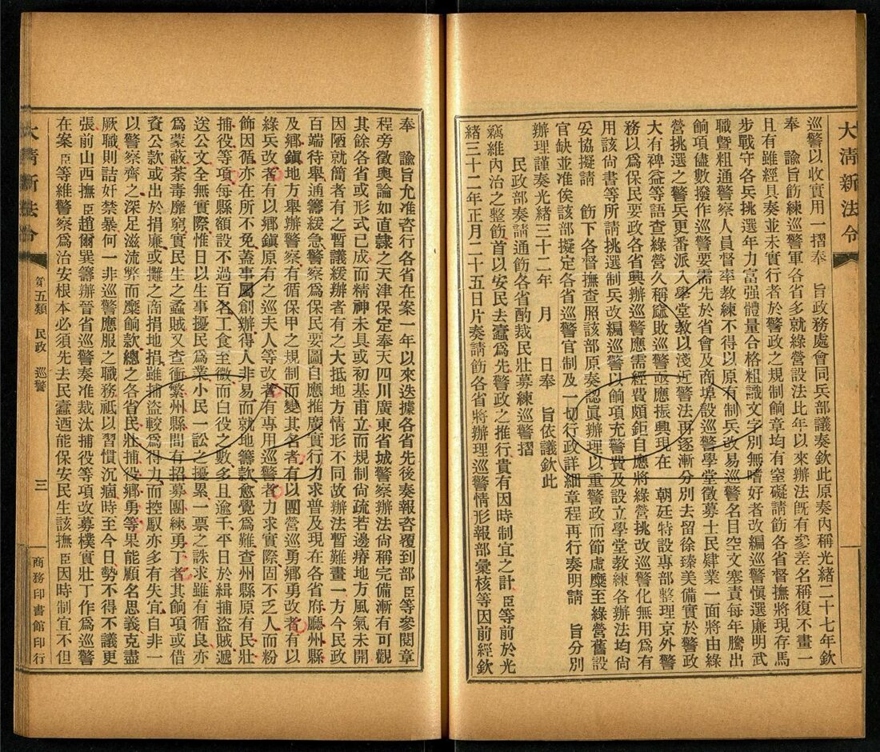 大清新法令
巡警以收實用一摺奉　旨政務處會同兵部議奏欽此原奏內稱光緒二十七年欽
奉　諭旨飭練巡警軍各省多就綠營設法比年以來辦法既有參差名稱復不畫一
且有雖經具奏並未實行者於警政之規制餉章均有窒礙請飭各省督撫將現存馬
步戰守各兵挑選年力富强體量合格粗識文字別無嗜好者改編巡警慎選廉明武
職曁粗通警察人員督率教練不得以原有制兵改易巡警名目空文塞責每年騰出
餉項儘數撥作巡警要需先於省會及商埠設巡警學堂徵募士民肄業一面將由綠
營挑選之警兵更番派入學堂教以淺近警法再逐漸分別去留徐臻美備實於警政
大有裨益等語查綠營久稱虛敗巡警亟應振興現在　朝廷特設專部整理京外警
務以爲保民要政各省興辦巡警應需經費頗鉅自應將綠營挑改巡警化無用爲有
用該尙書等所請挑選制兵改編巡警以餉項充警費及設立學堂教練各辦法均尙
妥協擬請　飭下各督撫查照該部原奏認眞辦理以重警政而節虛糜至綠營舊設
官缺並准俟該部擬定各省巡警官制及一切行政詳細章程再行奏明請　旨分別
辦理謹奏光緒三十二年　月　日奉　旨依議欽此
民政部奏請通飭各省酌裁民壯募練巡警摺
竊維內治之整飭首以安民去蠹爲先警政之推行貴有因時制宜之計臣等前於光
緒三十二年正月二十五日片奏請飭各省將辦理巡警情形報部彙核等因前經欽
奉　諭旨允准咨行各省在案一年以來迭據各省先後奏報咨覆到部臣等參閱章
程旁徵輿論如直隸之天津保定奉天四川廣東省城警察辦法尙稱完備漸有可觀
其餘各省或形式已成而精神未具或初基甫立而規制尙疏若邊瘠地方風氣未開
因陋就簡者有之暫議緩辦者有之大抵地方情形不同故辦法暫難畫一方今民政
百端待舉通籌緩急警察爲保民要圖自應推廣實行力求普及現在各省府廳州縣
及鄉鎭地方舉辦警察有循保甲之規制而變其名者有以團營巡勇鄉勇改者有以
綠兵改者有以鄉鎭原有之巡夫人等改者有專用巡警者力求實際固不乏人而粉
飾因循亦在所不免蓋事屬創辦得人非易而就地籌款愈覺爲難查州縣原有民壯
捕役等項每縣額設不過百名工食至微而白役之數多且逾千平日於緝捕盜賊遞
送公文全無實際惟日以生事擾民爲業小民一訟之擾累一票之誅求雖有循良亦
爲蒙蔽荼毒靡窮實民生之蟊賊又查衝繁州縣間有招募團練勇丁者其餉項或借
資公款或出於捐廉或攤之商捐地捐雖捕盜較爲得力而控馭亦多有失宜自非一
以警察齊之深足滋流弊而糜餉款總之各省民壯捕役鄉勇等果能顧名思義克盡
厥職則詰奸禁暴何一非巡警應服之職務祗以習慣沉痼時至今日勢不得不議更
張前山西撫臣趙爾巽籌辦晉省巡警奏准裁汰捕役等項改募樸實壯丁作爲巡警
在案臣等維警察爲治安根本必須先去民蠹迺能保安民生該撫臣因時制宜不但
大清新法令
第五類　民政　巡警
三
商務印書館印行